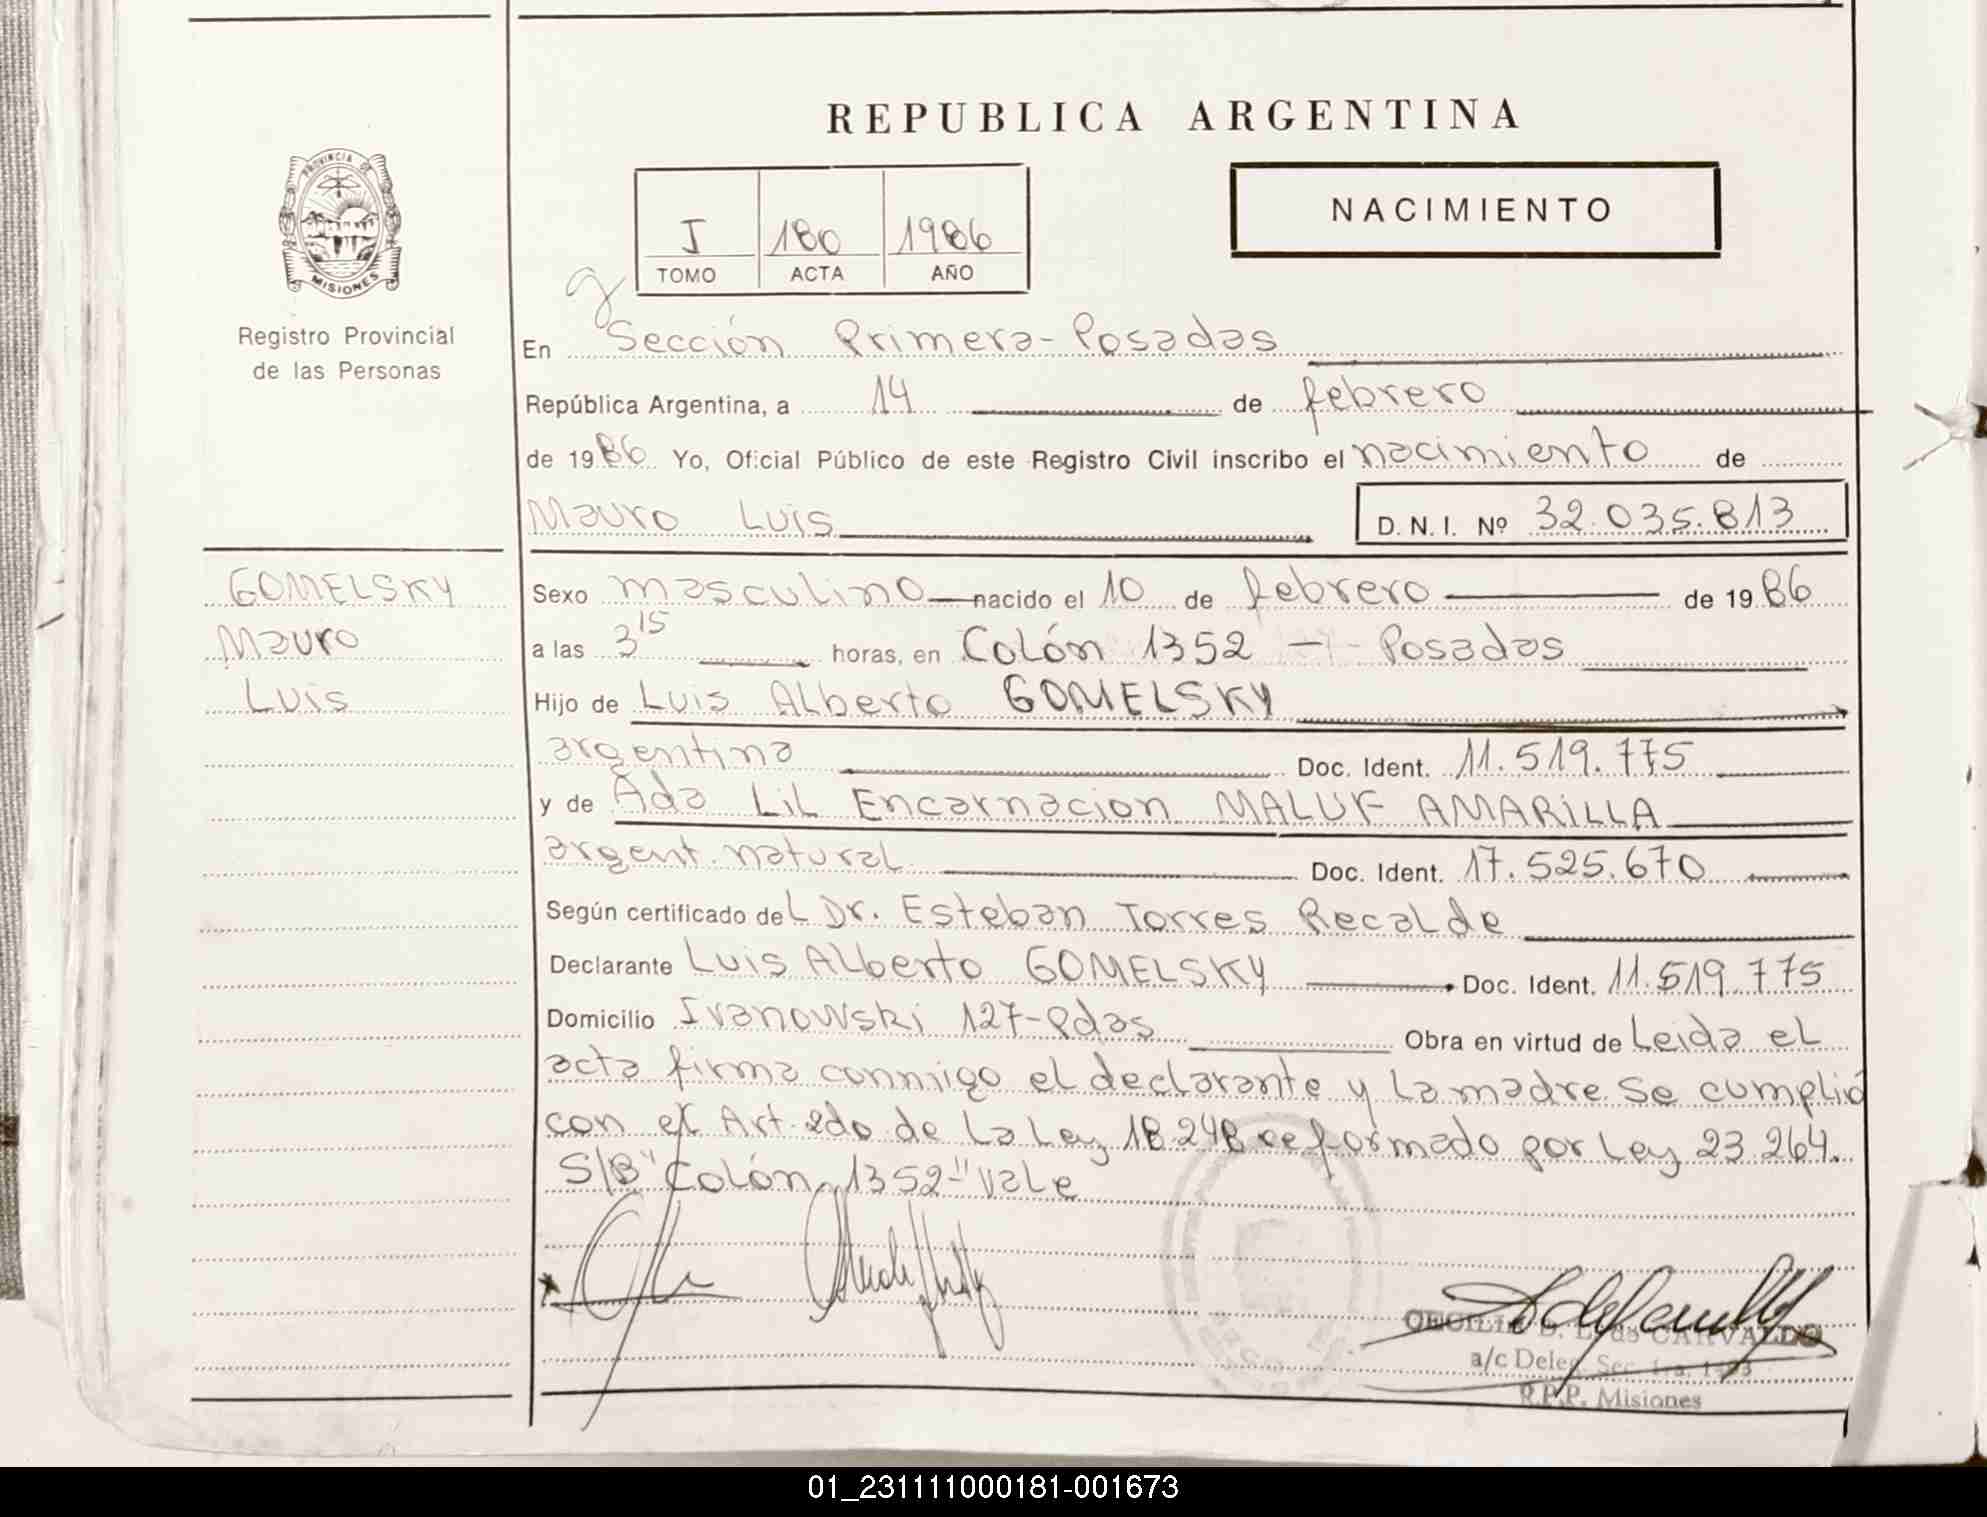 REPUBLICA ARGENTINA
PROVINCIA DE
MISIONES
Registro Provincial
de las Personas
I 180 1986
TOMO ACTA AÑO
NACIMIENTO
En Sección Primera-Posadas
República Argentina, a 14 de febrero
de 1986 Yo, Oficial Público de este Registro Civil inscribo el nacimiento de
Mauro Luis D. N. I. Nº 32.035.813
GOMELSKY
Mauro
Luis
Sexo masculino nacido el 10 de febrero de 1986
a las 3 15 horas, en Colón 1352 - Posadas
Hijo de Luis Alberto GOMELSKY
argentina Doc. Ident. 11.519.775
y de Ada Lil Encarnacion MALUF AMARILLA
argent. natural Doc. Ident. 17.525.670
Según certificado del Dr. Esteban Torres Recalde
Declarante Luis Alberto GOMELSKY Doc. Ident. 11.519.775
Domicilio Ivanowski 127-Pdas Obra en virtud de Leida el
acta firma conmigo el declarante y la madre. Se cumplió
con el Art. 2do de la Ley 18.248 reformado por Ley 23.264.
S/B "Colón 1352-" Vale
CECILIA D. L. de CARVALLO
a/c Deleg. Sec. 1ra.
R.P.P. Misiones
01_231111000181-001673